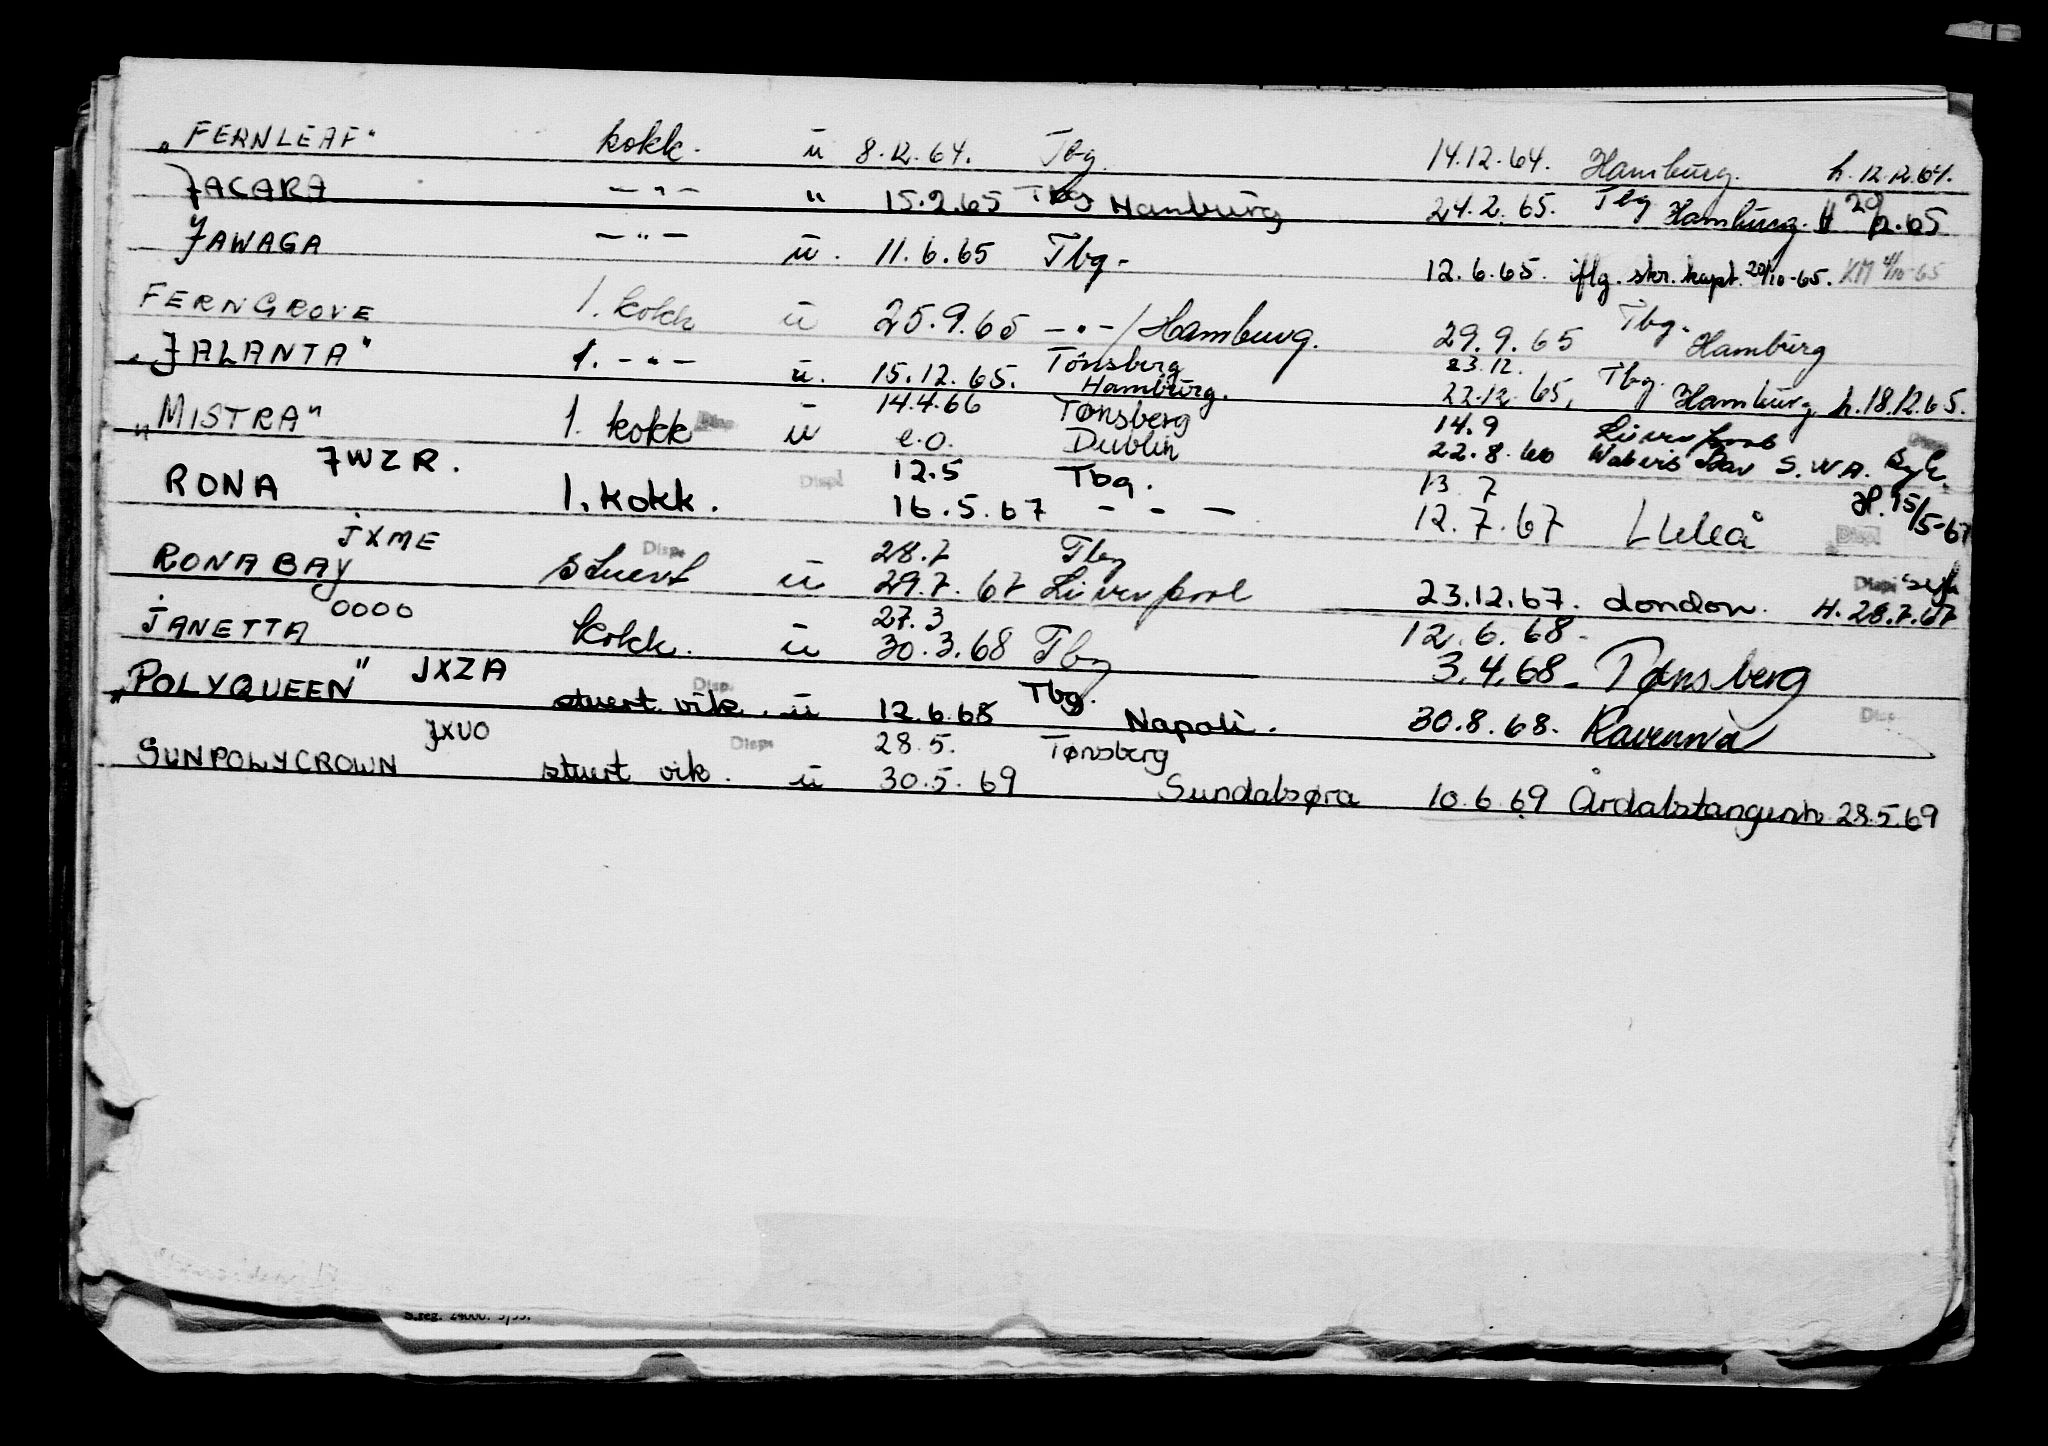 „FERNLEAF" kokk. u 8.12.64. Tbg. 14.12.64. Hamburg. h. 12.12.64.
JACARA —"— " 15.2.65 Tbg Hamburg 24.2.65. Tbg Hamburg. H 20/2.65
JAWAGA —"— u. 11.6.65 Tbg. 12.6.65. iflg. skr. kapt. 20/10-65. KM 4/10-65
FERNGROVE 1. kokk u 25.9.65 —"—/Hamburg. 29.9.65 Tbg. Hamburg
„JALANTA" 1. —"— u. 15.12.65. Tønsberg Hamburg. 23.12. 22.12.65. Tbg. Hamburg h.18.12.65.
„MISTRA" 1. kokk Disp. u 14.4.66 Tønsberg 14.9 Liverpool Disp.
e.o. Dublin 22.8.66 Walvis Bay S.W.A. Syk.
JWZR. 12.5 Tbg. 13 7
RONA 1. kokk. Disp. 16.5.67 – – – 12.7.67 Luleå H. 15/5-67 Disp.
JXME Disp. 28.7 Tbg
RONABAY stuert u 29.7.67 Liverpool 23.12.67. London. Disp. H. 28.7.67
0000 27.3 12.6.68.
JANETTA kokk. u 30.3.68 Tbg 3.4.68. Tønsberg
„POLYQUEEN" JXZA stuert vik. Disp. u 12.6.68 Tbg. Napoli. 30.8.68. Ravenna Disp.
JXUO Disp. 28.5. Tønsberg
SUNPOLYCROWN stuert vik. u 30.5.69 Sundalsøra 10.6.69 Årdalstangen h. 28.5.69
S.reg. 24000. 5/55.